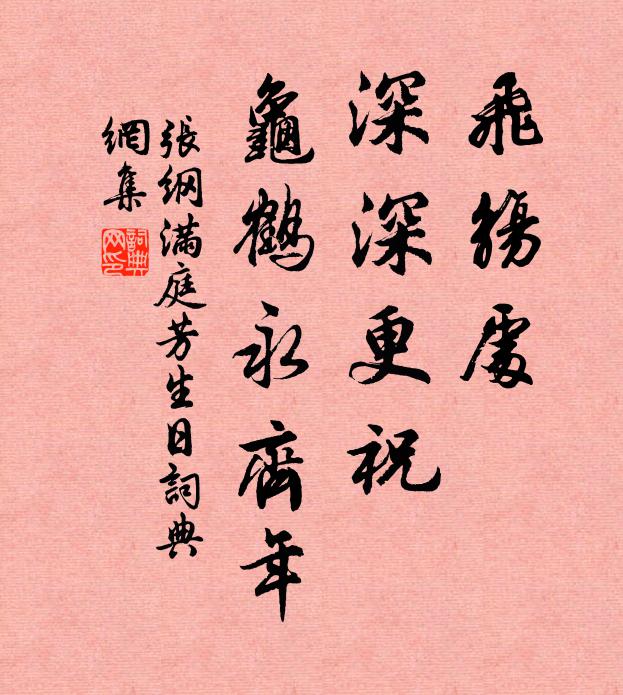 飛觴處
深深更祝
龜鶴永齊年
張綱滿庭芳生日詞典
網集
詞典
网印